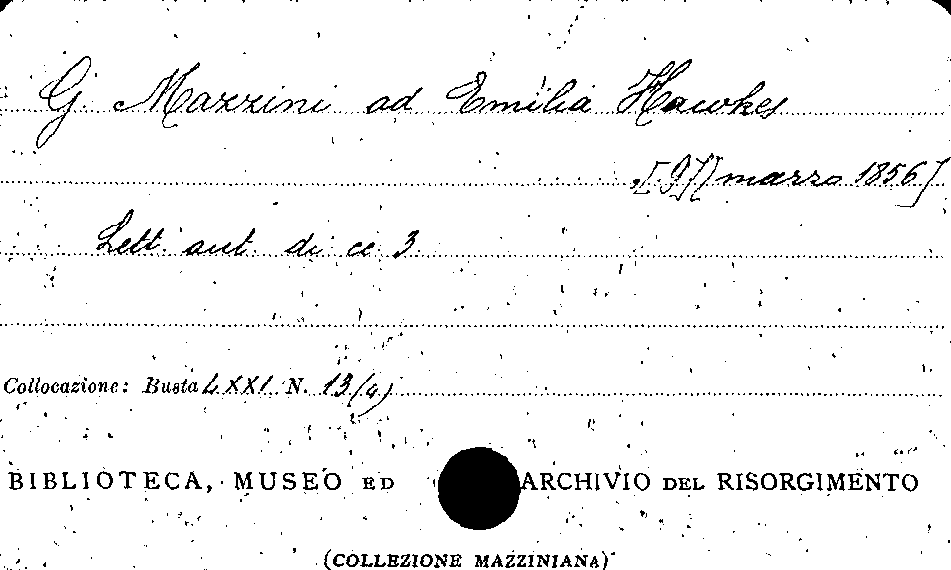 G Mazzini ad Emilia Hawkes
[9?] marzo 1856]
Lett. aut. di cc 3
Collocazione: Busta LXXI N. 13/(4)
BIBLIOTECA, MUSEO ED ARCHIVIO DEL RISORGIMENTO
(COLLEZIONE MAZZINIANA)